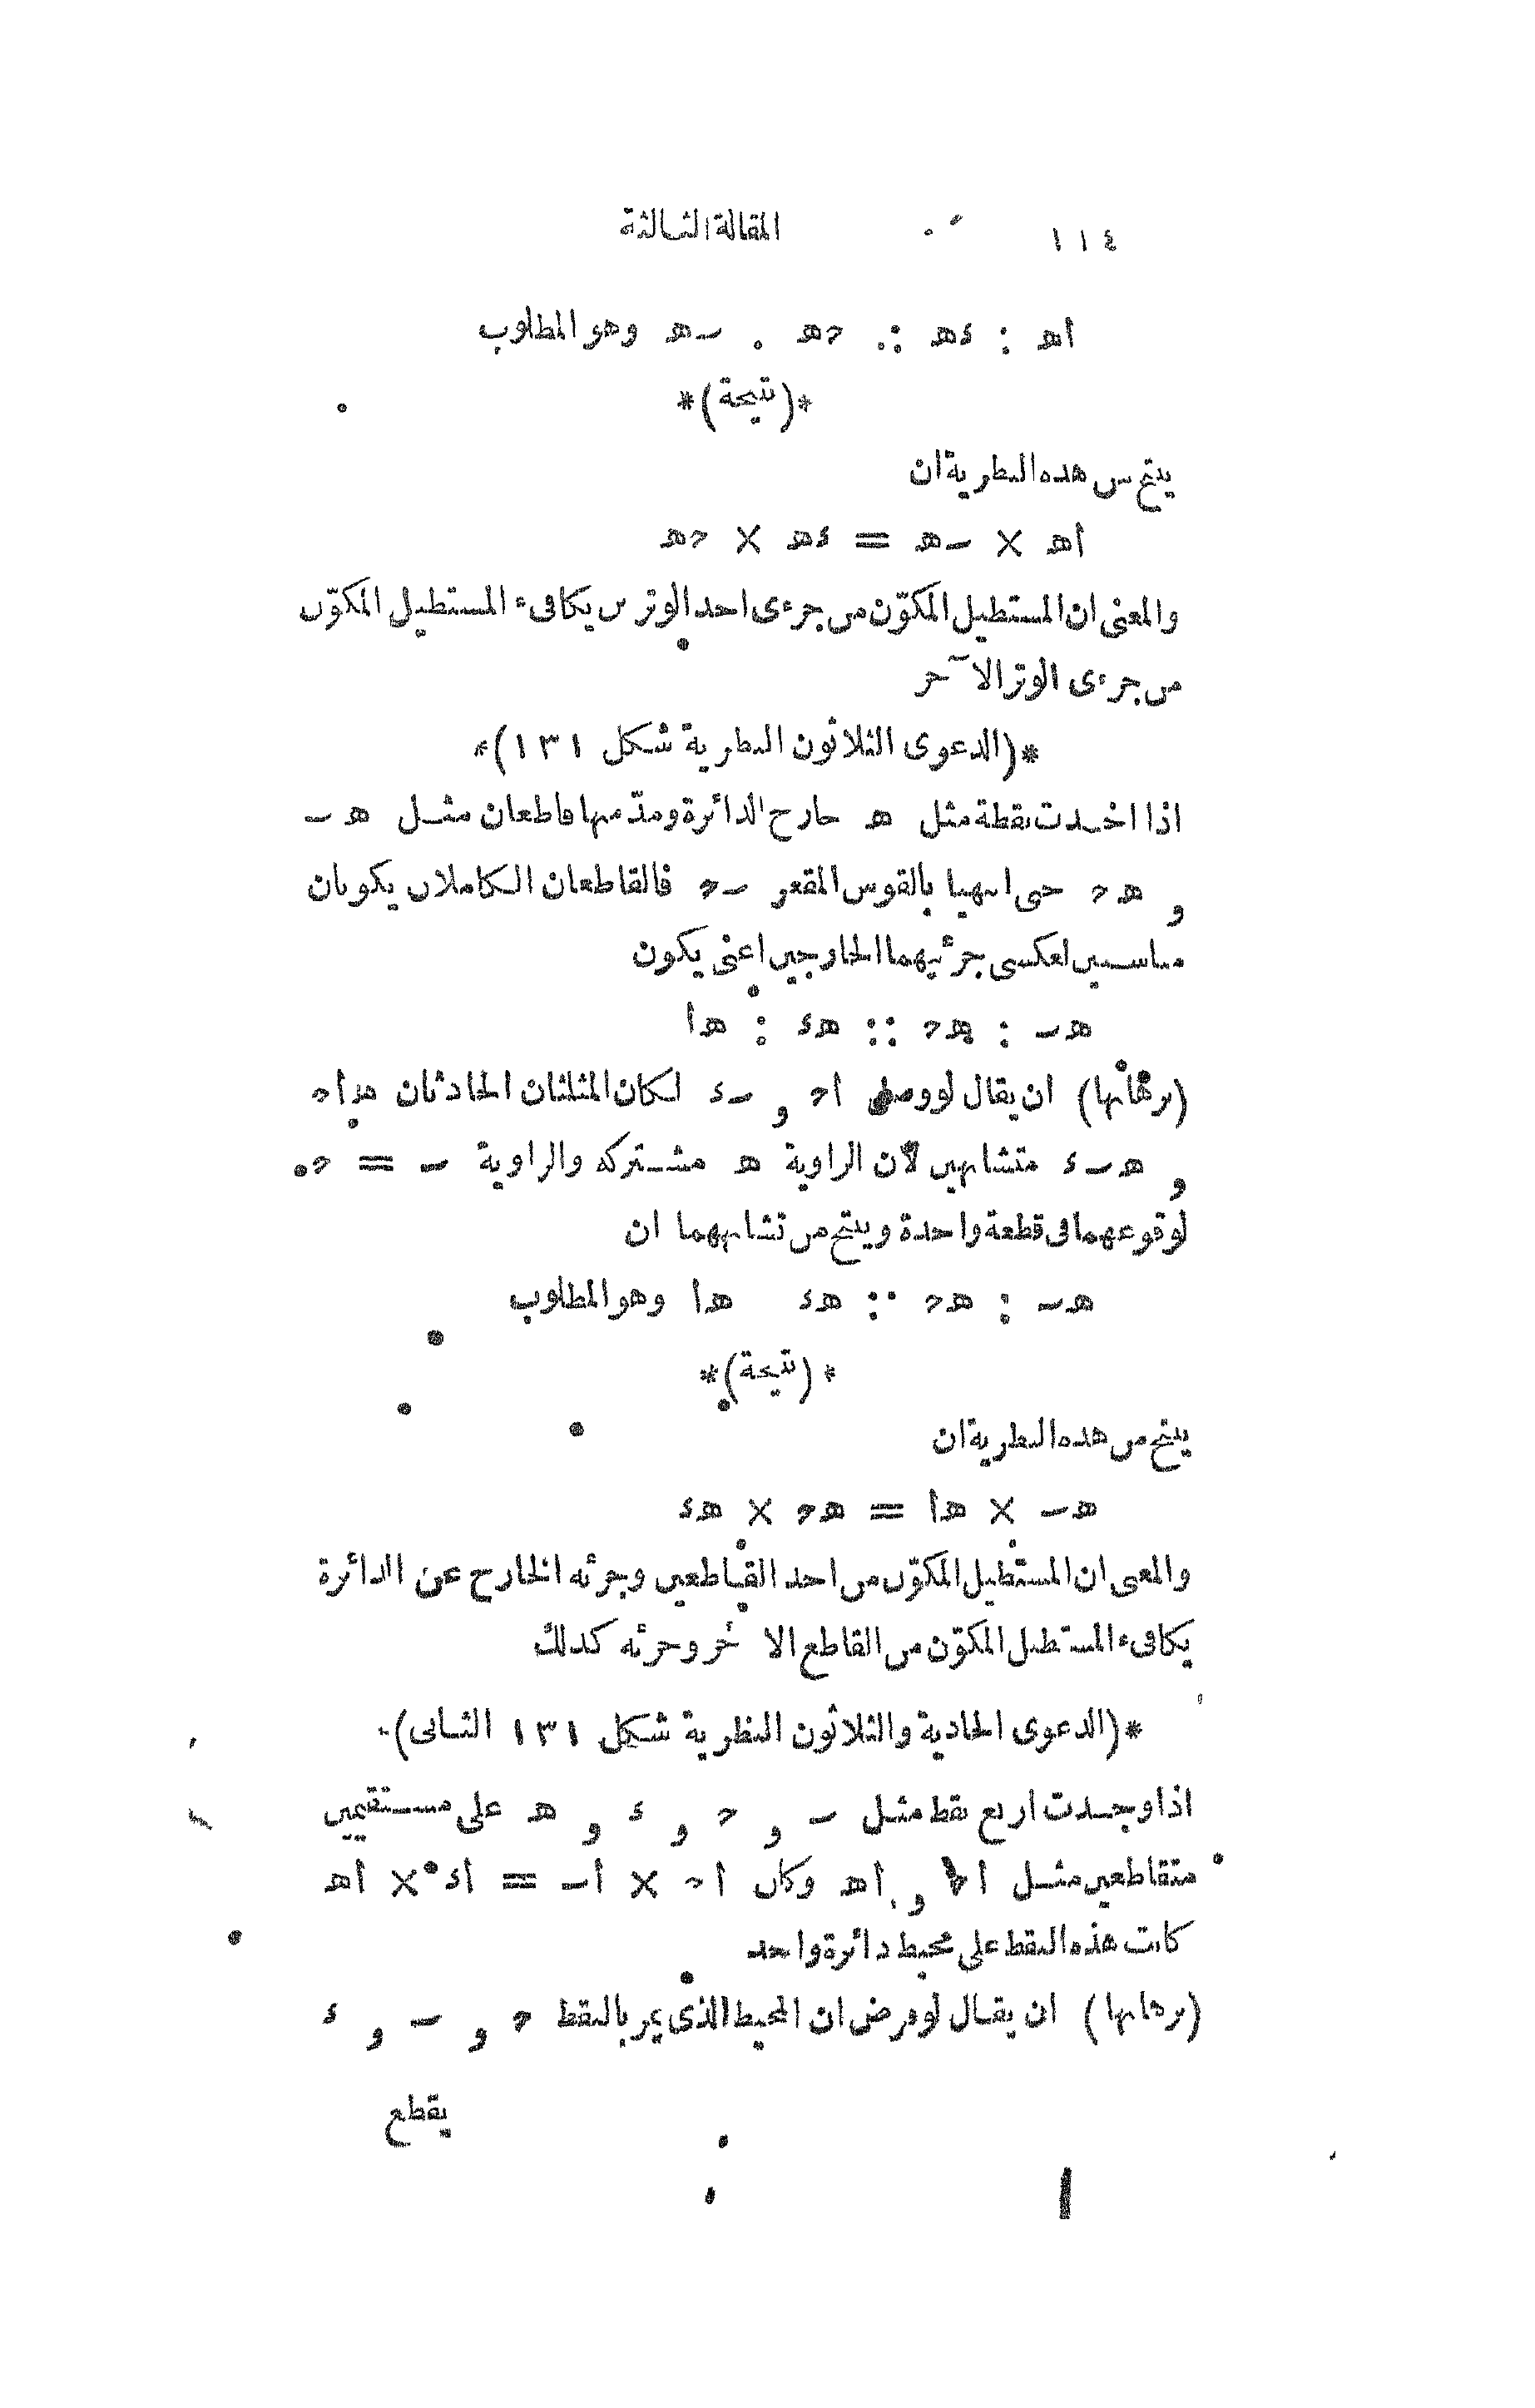 ١١٤ المقالة الثالثة
أهـ : ءهـ :: حهـ : ـهـ وهو المطلوب
*(نتيجة)*
ينتج من هذه النظرية ان
أهـ × ـهـ = ءهـ × حهـ
والمعنى ان المستطيل المكوّن من جزءى احد الوترين يكافىء المستطيل المكوّن
من جزءى الوتر الآخر
*(الدعوى الثلاثون النظرية شكل ١٣١)*
اذا اخـذت نقطة مثل هـ خارج الدائرة ومدّ منها قاطعان مثـل هـ ـ
و هـ حـ حتى انتهيا بالقوس المقعر ـ حـ فالقاطعان الكاملان يكونان
مناسبين لعكسى جزئيهما الخارجين اعنى يكون
هـ ـ : هـ حـ :: هـ ء : هـ أ
(برهانها) ان يقال لو وصل أ حـ و ـ ء لكان المثلثان الحادثان هـ أ حـ
و هـ ـ ء متشابهين لان الزاوية هـ مشـتركه والزاوية ـ = حـ
لوقوعهما فى قطعة واحدة وينتج من تشابههما ان
هـ ـ : هـ حـ :: هـ ء : هـ أ وهو المطلوب
*(نتيجة)*
ينتج من هذه النظرية ان
هـ ـ × هـ أ = هـ حـ × هـ ء
والمعنى ان المستطيل المكوّن من احد القـاطعين وجزئه الخارج عن الدائرة
يكافىء المستطيل المكوّن من القاطع الآخر وجزئه كذلك
*(الدعوى الحادية والثلاثون النظرية شكل ١٣١ الثـانى)*
اذا وجـدت اربع نقط مثـل ـ و حـ و ء و هـ على مسـتقيمين
متقاطعين مثـل أ و أهـ وكان أ حـ × أ ـ = أ ء × أهـ
كانت هذه النقط على محيط دائرة واحد
(برهانها) ان يقـال لو فرض ان المحيط الذى يمر بالنقط حـ و ـ و ء
يقطع